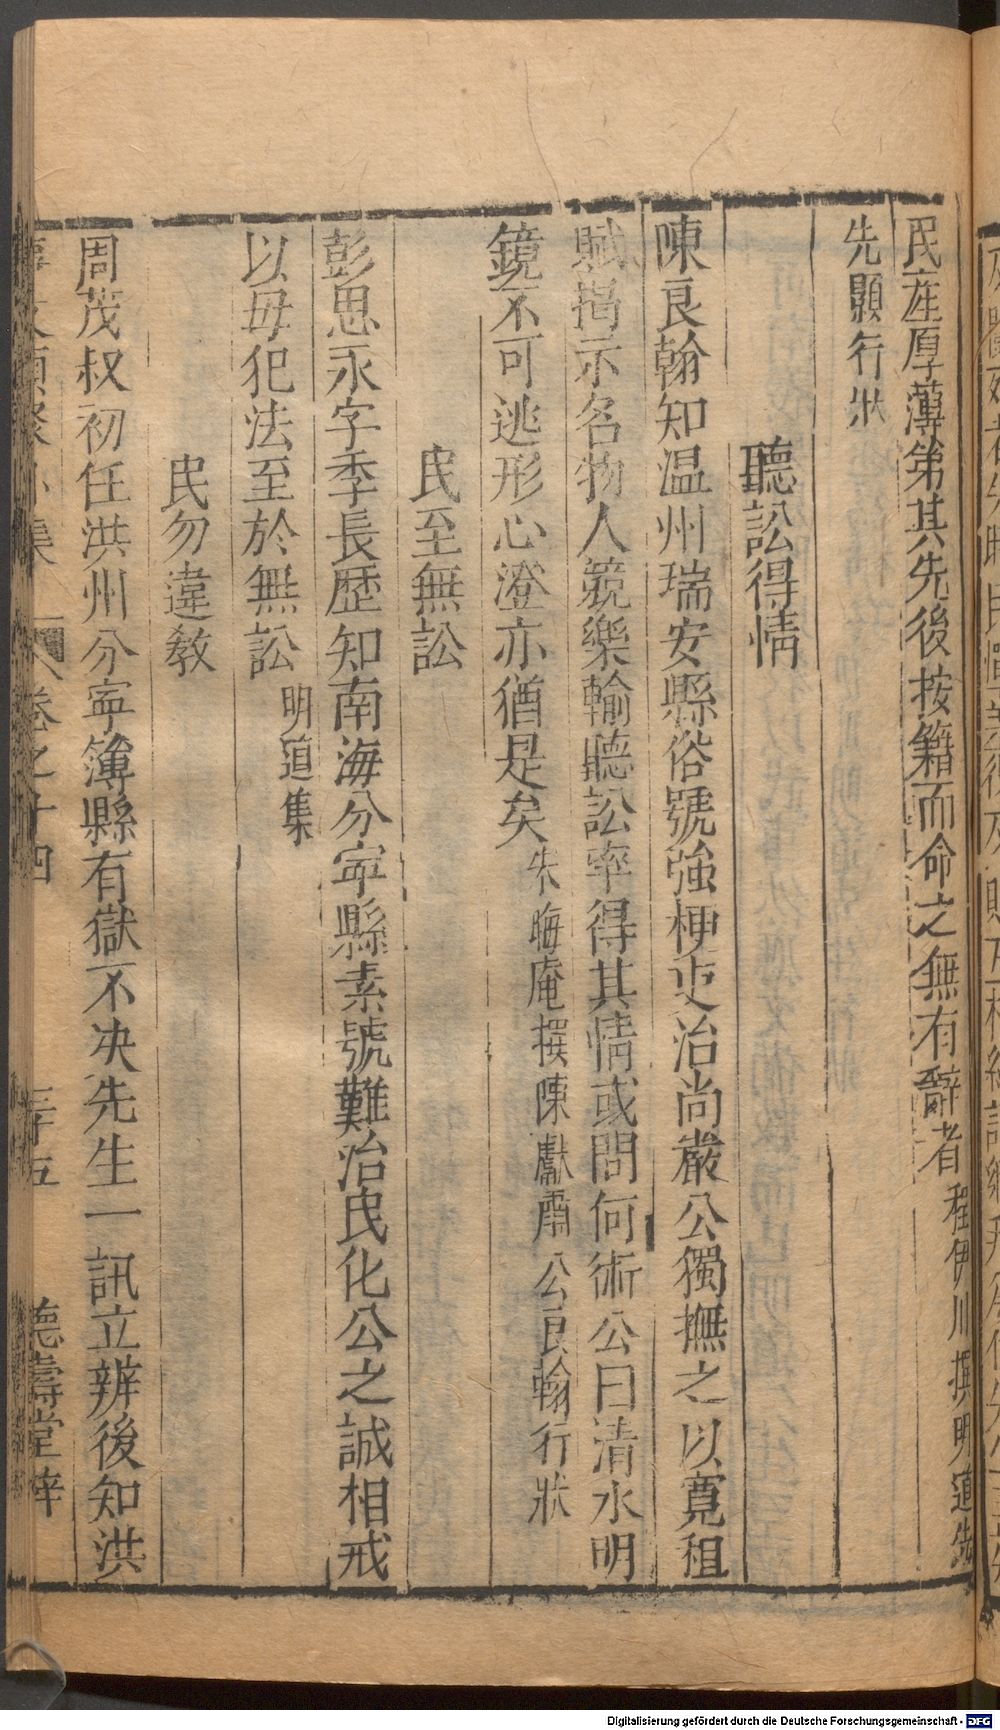 民產厚薄第其先後按籍而命之無有辭者程伊川撰明道先
先顥行狀
聽訟得情
陳良翰知温州瑞安縣俗號強梗吏治尚嚴公獨撫之以寛租
賦揭示名物人競樂輸聽訟率得其情或問何術公曰清水明
鏡不可逃形心澄亦猶是矣朱晦庵撰陳獻肅公良翰行狀
民至無訟
彭思永字季長歷知南海分寧縣素號難治民化公之誠相戒
以毋犯法至於無訟明道集
民勿違敎
周茂叔初任洪州分寧簿縣有獄不决先生一訊立辨後知洪
卷之十四 三十五 德壽堂梓
Digitalisierung gefördert durch die Deutsche Forschungsgemeinschaft - DFG